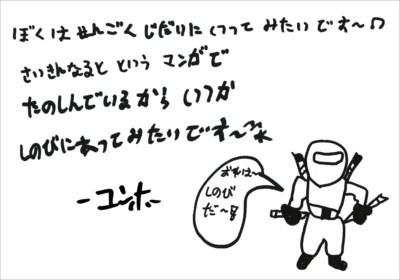 ぼくは せんごくじだいに いって みたいです〜♫
さいきんなると という マンガで
たのしんでいるから いつか
しのびにあってみたいです〜
-ユンホ-
おれは〜
しのび
だ〜!!